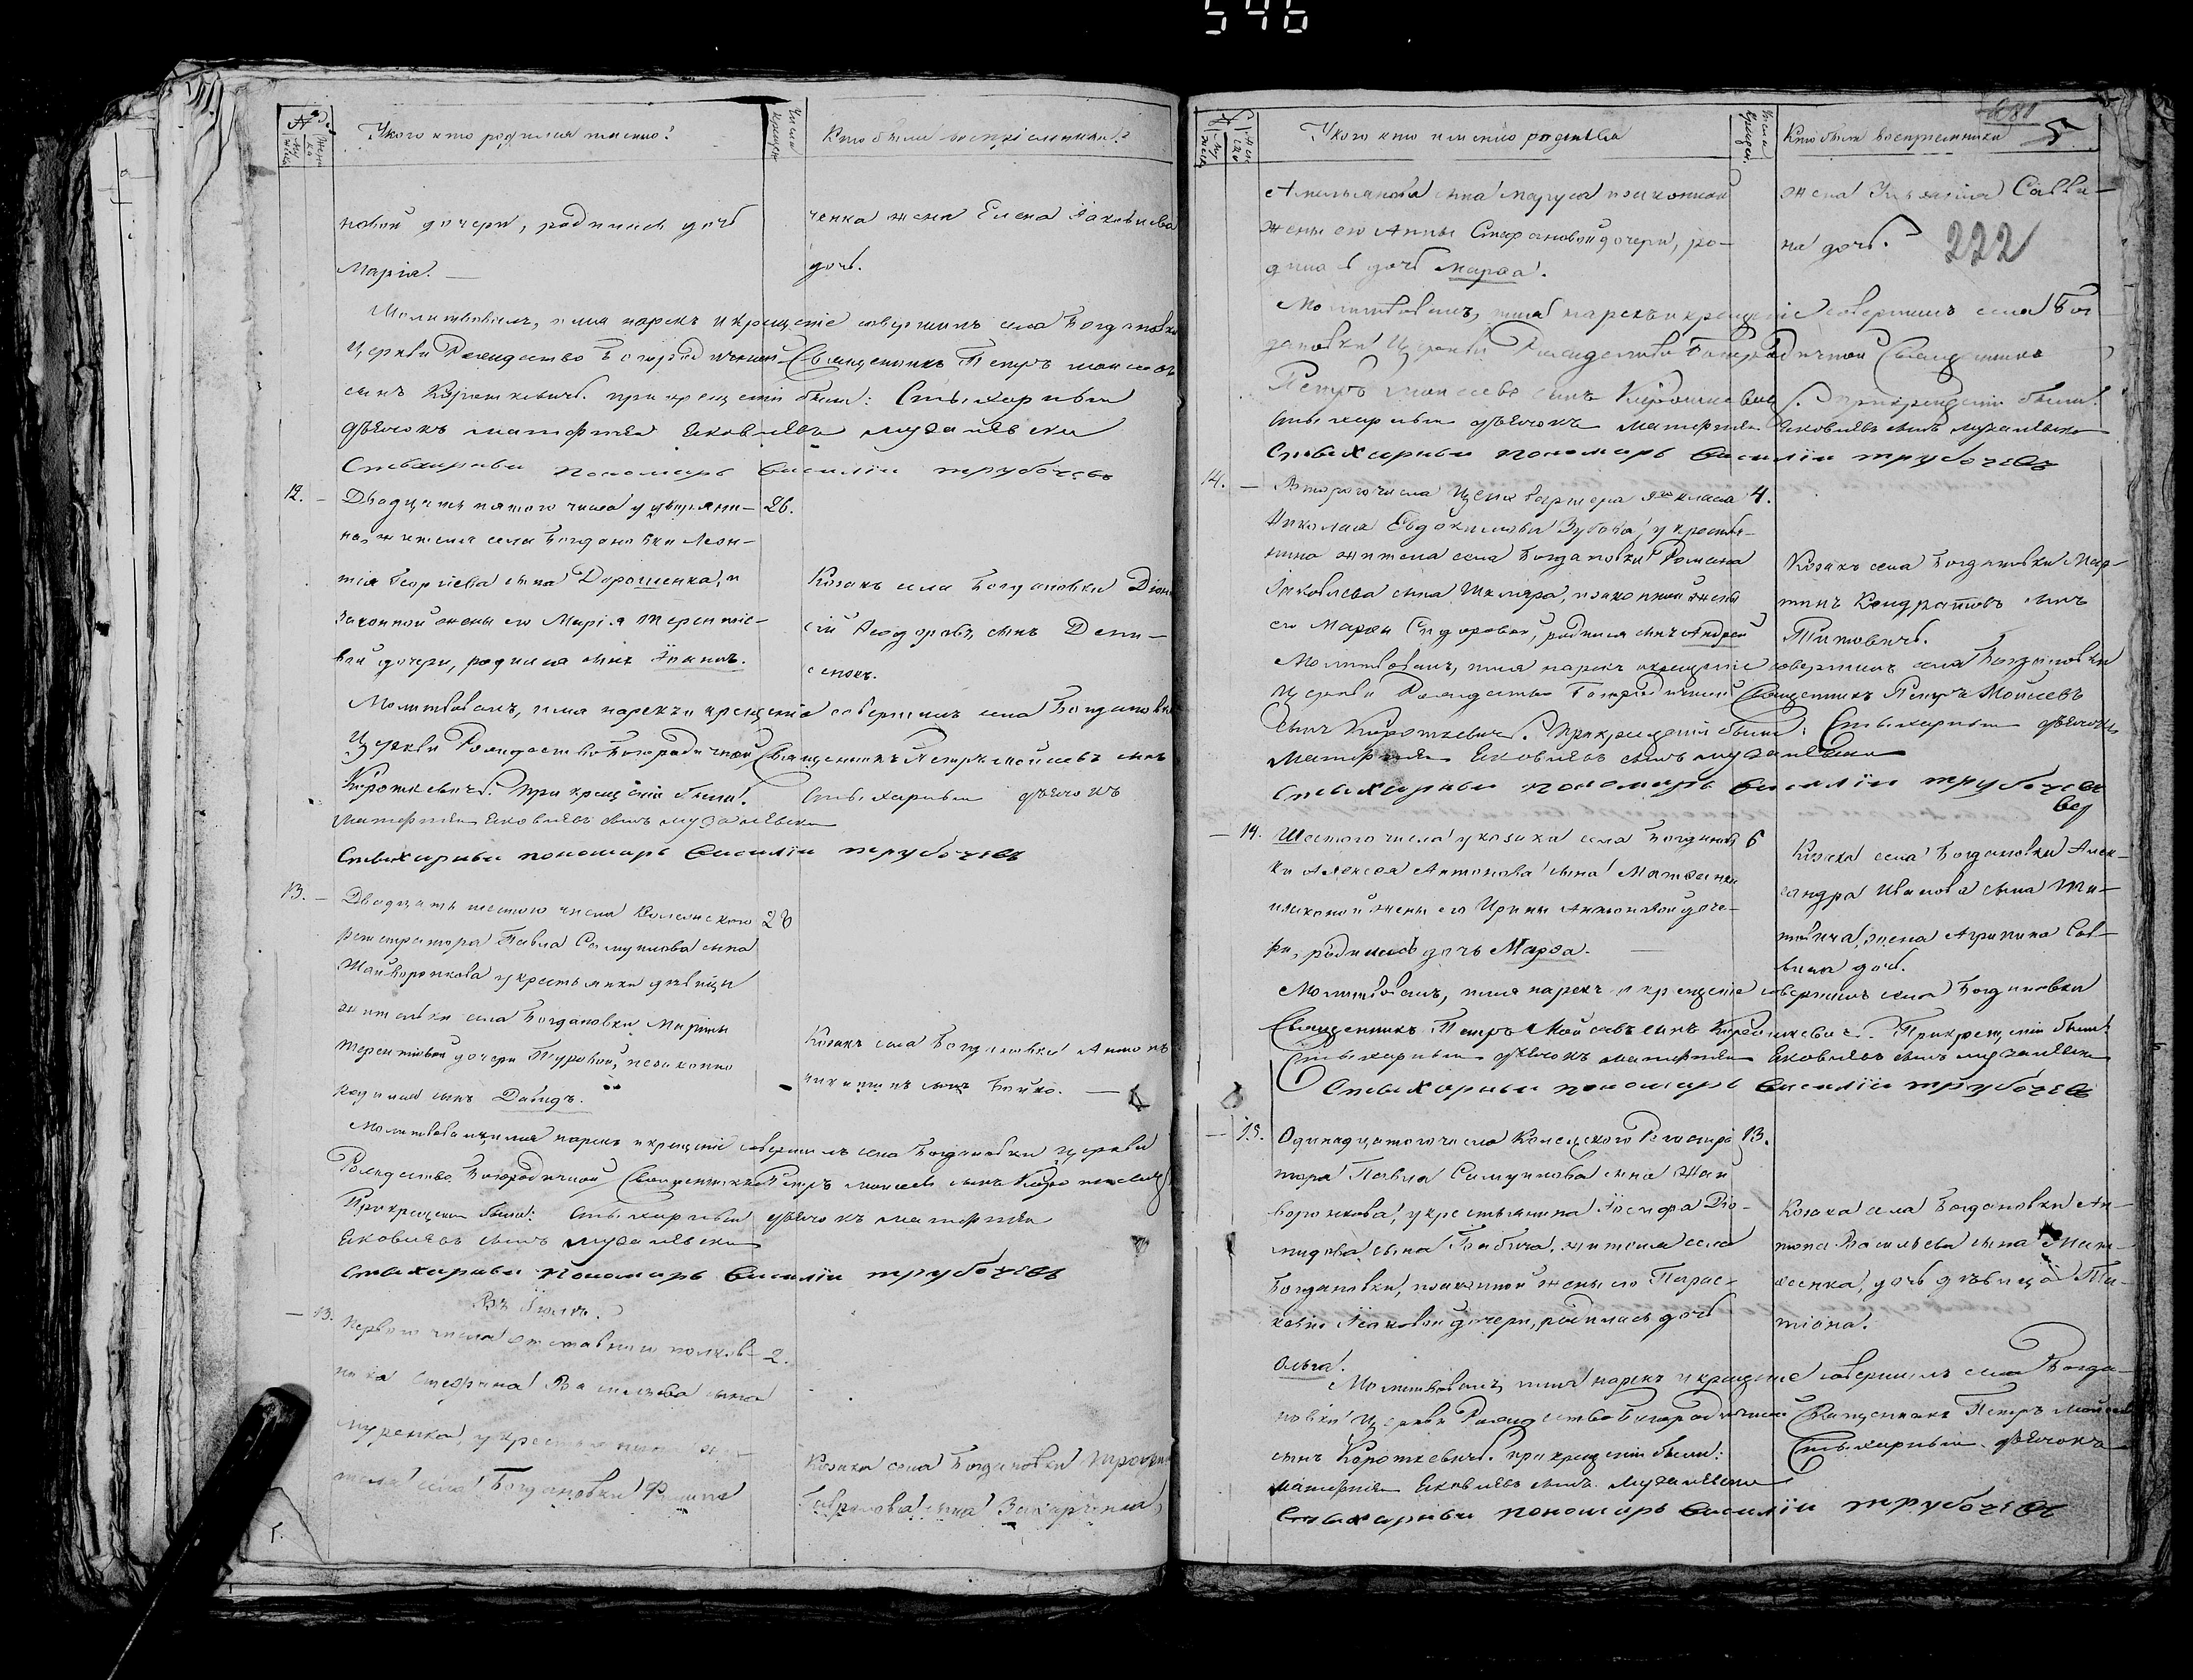 546
№
Мужеска
Женска
У кого кто родился именно?
Числа Крещен
Кто были воспріемники?
новой дочери, родилась дочь
Марія. —
ченка жена Елена Іаковлева
дочь.
Молитвовалъ, имя нарекъ и крещеніе совершилъ села Богдановки
Церкви Рождество Богородичной Священникъ Петръ Моисеевъ
сынъ Короткевичъ. при крещеніи были: Стихарный
дьячокъ Матфей Яковлевъ
Стихарный пономарь Василій Трубочевъ
12. — Двадцать пятого числа у
26.
на жителя села Богдановки Леон-
тія Георгіева сына Дорошенка, и
законной жены его Марія Терентіе-
вой дочери, родился сынъ Іоаннъ.
Козакъ села Богдановки Діони
сій Ѳеодоровъ сынъ Дени-
сенокъ.
Молитвовалъ, имя нарекъ и крещеніе совершилъ села Богдановки
Церкви Рождество Богородичной Священникъ Петръ Моисеевъ сынъ
Короткевичъ. При крещеніи были: Стихарный дьячокъ
Матфей Яковлевъ сынъ
Стихарный пономарь Василій Трубочевъ
13. — Двадцать шестого числа Колежского
28
регистратора Павла Самуилова сына
Жайворонкова у крестьянки девицы
жительки села Богдановки Марины
Терентіевой дочери Туровой, незаконно
родился сынъ Давидъ.
Козакъ села Богдановки Антонъ
Никитинъ сынъ Бойко. —
Молитвовалъ имя нарекъ и крещеніе совершилъ села Богдановки Церкви
Рождество Богородичной Священникъ Петръ Моисеевъ сынъ Короткевичъ
При крещеніи были: Стихарный дьячокъ Матфей
Яковлевъ сынъ
Стихарный пономарь Василій Трубочевъ
Въ Іюлѣ.
— 13. Первого числа отставного полков-
2.
ника Стефана Васильева сына
у крестьянина жи-
теля села Богдановки
Козака села Богдановки
Гаврилова сына Захарченка,
№
Мужеска
Женска
У кого кто именно родился
Числа Крещен.
Кто были воспріемники
5
Амельянова сына и законной
жены его Анны Стефановой дочери, ро-
дилась дочь Марѳа.
жена Савви-
на дочь.
222
Молитвовалъ, имя нарекъ и крещеніе совершилъ села Бог
дановки Церкви Рождество Богородичной Священникъ
Петръ Моисеевъ сынъ Короткевичъ. При крещеніи были:
Стихарный дьячокъ Матфей Яковлевъ сынъ
Стихарный пономарь Василій Трубочевъ
14. — Второго числа 9го класа
4.
Николая Евдокимова Зубова, у крестья-
нина жителя села Богдановки Романа
Іаковлева сына Шкляра, и законной жены
его Марѳы Сидоровой, родился сынъ Андрей
Козакъ села Богдановки Мар-
тинъ Кондратовъ сынъ
Титовичъ.
Молитвовалъ, имя нарекъ и крещеніе совершилъ села Богдановки
Церкви Рождество Богородичной Священникъ Петръ Моисеевъ
сынъ Короткевичъ. При крещеніи были: Стихарный дьячокъ
Матфей Яковлевъ сынъ
Стихарный пономарь Василій Трубочевъ
— 14. Шестого числа у козака села Богданов
6
ки Алексея Антонова сына Матѳенка
и законной жены его Ирины Антоновой доче-
ри, родилась дочь Марѳа. —
Козака села Богдановки Алек-
сандра Иванова сына Ти-
товича, жена Агрипина Сав-
вина дочь.
Молитвовалъ, имя нарекъ и крещеніе совершилъ села Богдановки
Священникъ Петръ Моисеевъ сынъ Короткевичъ. При крещеніи были:
Стихарный дьячокъ Матфей Яковлевъ сынъ
Стихарный пономарь Василій Трубочевъ
— 15. Одинадцатого числа Колежского Регистра
13.
тора Павла Самуилова сына Жай
воронкова, у крестьянина Іосифа Діо-
мидова сына Бабича, жителя села
Богдановки, и законной жены его Парас-
ковіи Исаковой дочери, родилась дочь
Ольга.
Козака села Богдановки Ан-
тона Васильева сына Мат-
ѳеенка, дочь дѣвица Та-
тіана.
Молитвовалъ, имя нарекъ и крещеніе совершилъ села Богда-
новки Церкви Рождество Богородичной Священникъ Петръ Моисеевъ
сынъ Короткевичъ. при крещеніи были: Стихарный дьячокъ
Матфей Яковлевъ сынъ
Стихарный пономарь Василій Трубочевъ